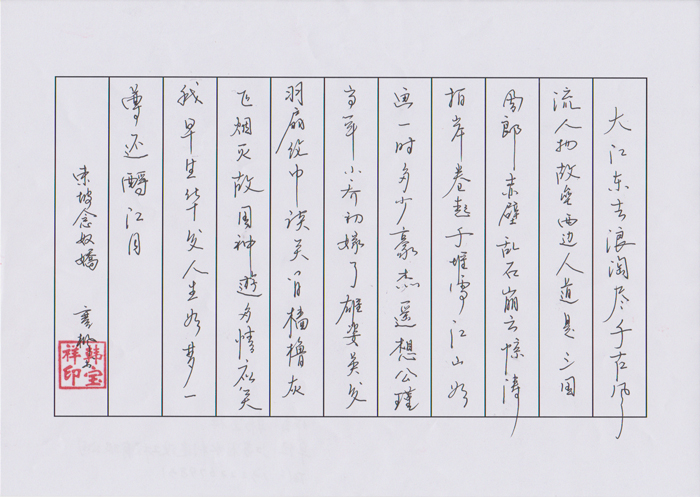 大江东去浪淘尽千古风
流人物故垒西边人道是三国
周郎赤壁乱石崩云惊涛
拍岸卷起千堆雪江山如
画一时多少豪杰遥想公瑾
当年小乔初嫁了雄姿英发
羽扇纶巾谈笑间樯橹灰
飞烟灭故国神遊多情应笑
我早生华发人生如梦一
樽还酹江月
东坡念奴娇
韩宝祥印